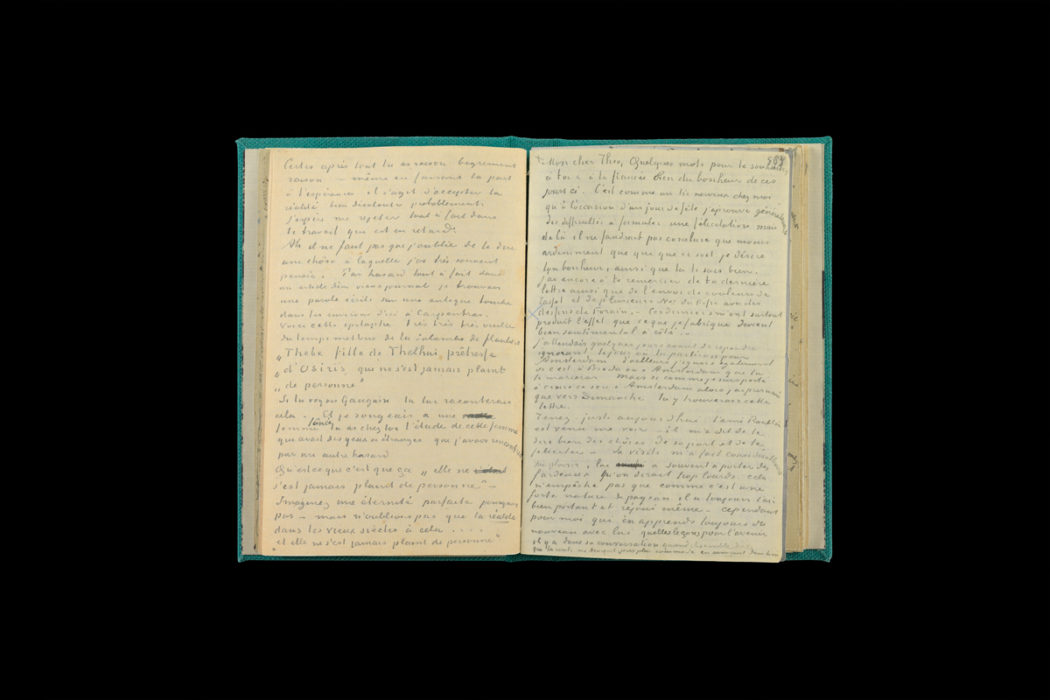 Certes après tout tu as raison bigrement
raison — même en faisant la part
à l'espérance il s'agit d'accepter la
réalité bien désolante probablement.
J'espère me rejeter tout à fait dans
le travail qui est en retard.
Ah il ne faut pas que j'oublie de te dire
une chose à laquelle j'ai très souvent
pensé. Par hasard tout à fait dans
un article d'un vieux journal je trouvais
une parole écrite sur une antique tombe
dans les environs d'ici à Carpentras.
Voici cette épitaphe très très très vieille
du temps mettons de la Salambo de Flaubert
„Thebe fille de Thelhui, prêtresse
„d'Osiris, qui ne s'est jamais plaint
„de personne"
Si tu voyais Gauguin tu lui raconterais
cela. Et je songeais à une
femme fanée tu as chez toi l'étude de cette femme
qui avait des yeux si étranges que j'avais rencontrée
par un autre hasard
Qu'est ce que c'est que ça „elle ne
s'est jamais plaind de personne" —
Imaginez une éternité parfaite pourquoi
pas — mais n'oublions pas que la réalité
dans les vieux siècles a cela . . . .
et elle ne s'est jamais plaint de personne"
Mon cher Theo, Quelques mots pour te souhaiter
à toi & à ta fiancée bien du bonheur de ces
jours ci. C'est comme un tic nerveux chez moi
qu'à l'occasion d'un jour de fête j'éprouve généralement
des difficultés à formuler une félicitation mais
de là il ne faudrait pas conclure que moins
ardemment que qui que ce soit je désire
ton bonheur, ainsi que tu le sais bien.
J'ai encore à te remercier de ta dernière
lettre ainsi que de l'envoi de couleurs de
Tasset et de plusieurs Nos du Fifre avec des
dessins de Forain. — Ces derniers m'ont surtout
produit l'effet que ce que je fabrique devient
bien sentimental à côté...
J'attendais quelques jours avant de répondre
ignorant le jour où tu partirais pour
Amsterdam. D'ailleurs j'ignore également
si c'est à Breda ou à Amsterdam que tu
te marieras. Mais si comme je suis porté
à croire ce sera à Amsterdam alors j'ai présumé
que vers Dimanche tu y trouverais cette
lettre.
Tenez juste aujourd'hui l'ami Roulin
est venu me voir il m'a dit de te
dire bien des choses de sa part et de te
féliciter — Sa visite m'a fait considérablement
du plaisir, lui a souvent à porter des
fardeaux qu'on dirait trop lourds cela
n'empêche pas que comme c'est une
forte nature de paysan il a toujours l'air
bien portant et réjoui même — cependant
pour moi qui en apprends toujours du
nouveau avec lui quelles leçons pour l'avenir
il y a dans sa conversation quand il semble dire
que la route ne devient pas plus commode en avançant dans la vie